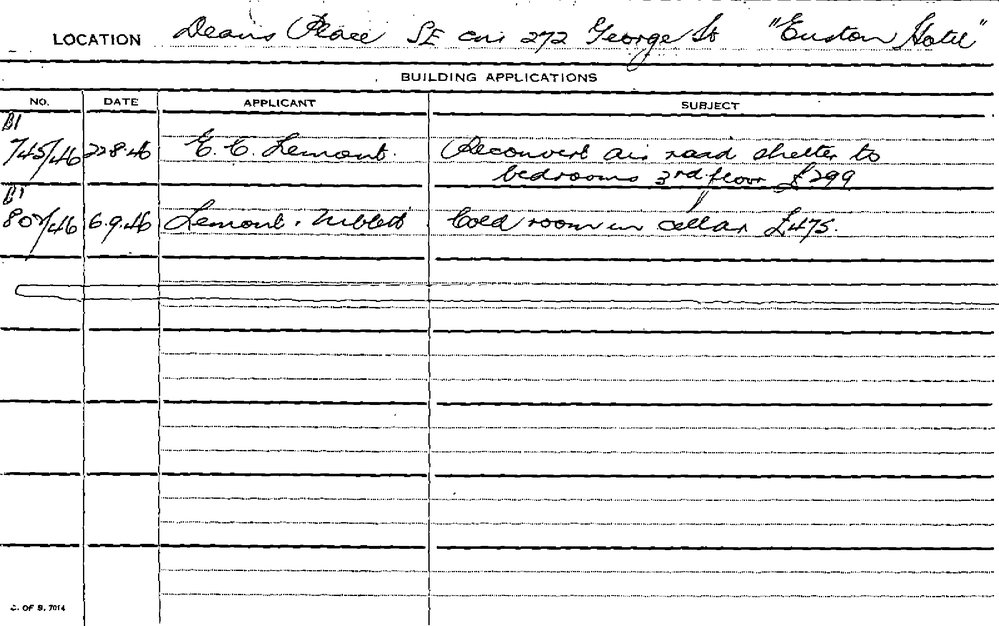 LOCATION Deans Place SE cnr 272 George St "Euston Hotel"
BUILDING APPLICATIONS
NO. DATE APPLICANT SUBJECT
B1
745/46 22.8.46 E. C. Lemont. Reconvert air raid shelter to
bedrooms 3rd floor £299
B1
807/46 6.9.46 Lemont & Niblett Cold room in cellar £475.
C. OF S. 7014